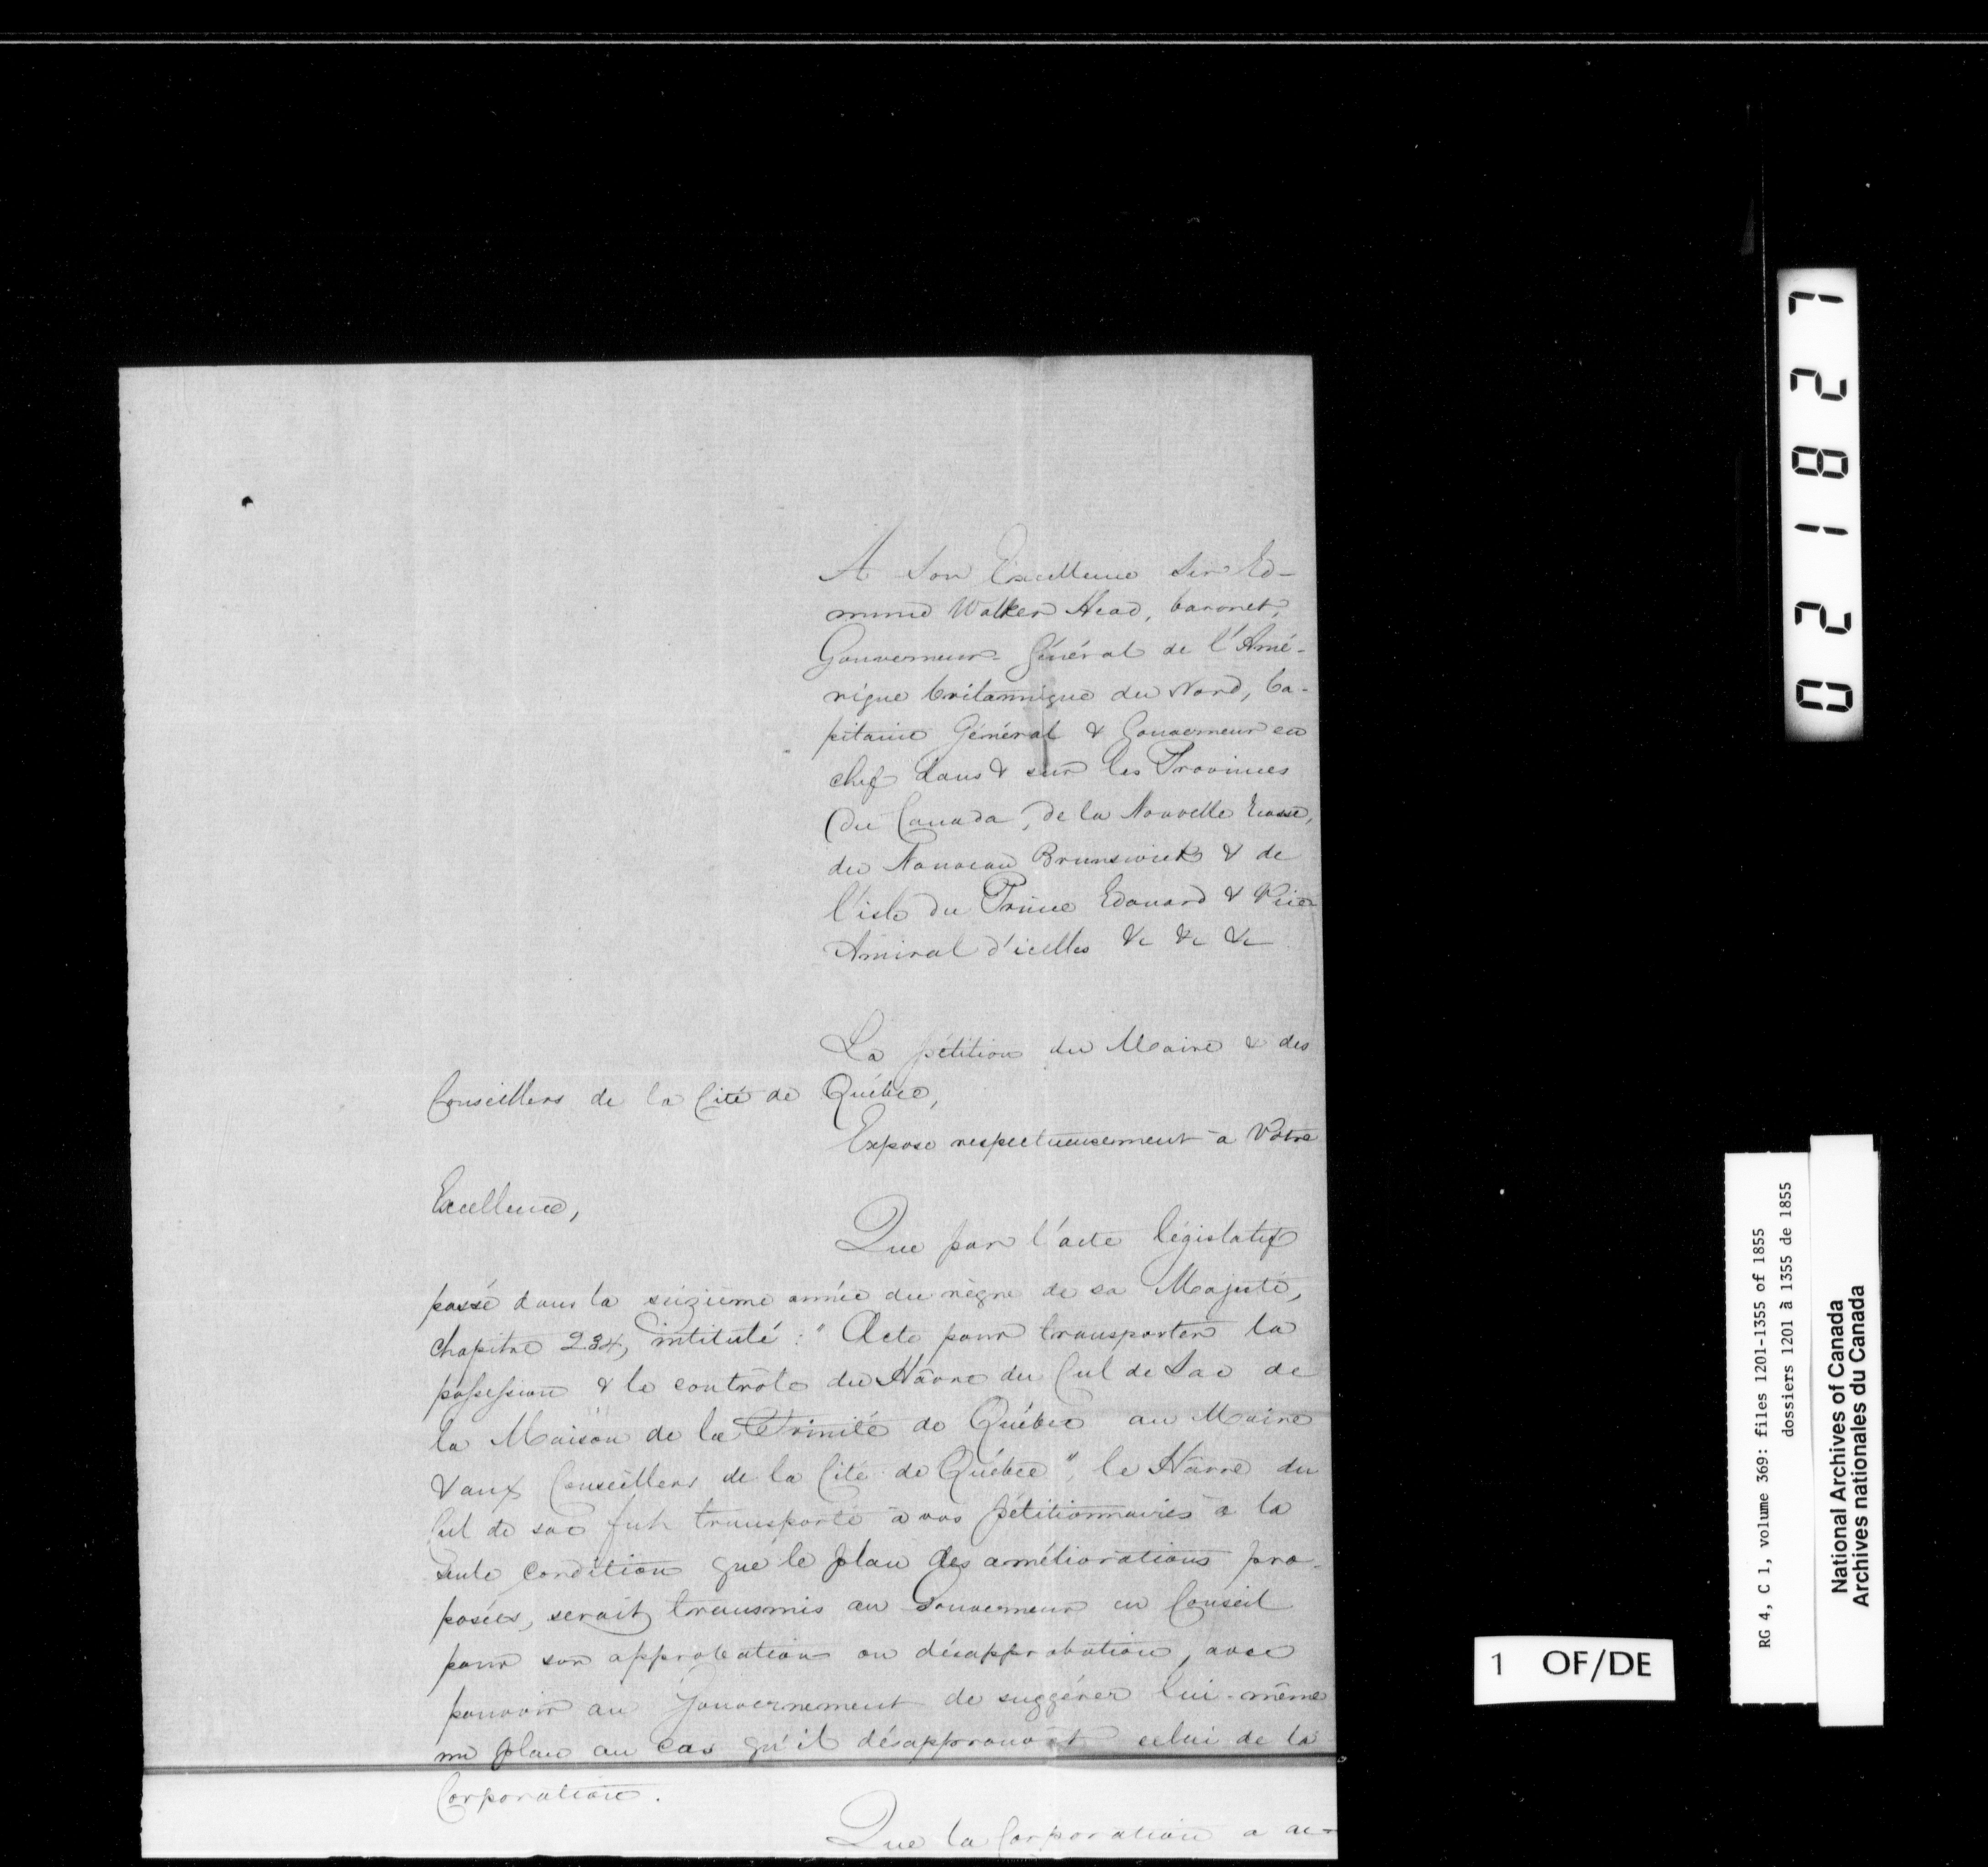 A Son Excellence Sir Ed-
mund Walker Head, baronet,
Gouverneur-Général de l'Amé-
rique britannique du Nord, Ca-
pitaine Général & Gouverneur en
chef dans & sur les Provinces
du Canada, de la Nouvelle Ecosse,
du Nouveau Brunswick & de
l'isle du Prince Edouard & Vice
Amiral d'icelles &c &c &c
La pétition du Maire & des
Conseillers de la Cité de Québec,
Expose respectueusement à Votre
Excellence,
Que par l'acte législatif
passé dans la seizième année du règne de sa Majesté,
chapitre 234, intitulé : " Acte pour transporter la
possession & le contrôle du Hâvre du Cul de Sac de
la Maison de la Trinité de Québec au Maire
& aux Conseillers de la Cité de Québec ", le Hâvre du
Cul de sac fut transporté à vos pétitionnaires à la
seule condition que le plan des améliorations pro-
posées, serait transmis au Gouverneur en Conseil
pour son approbation ou désapprobation, avec
pouvoir au Gouvernement de suggérer lui-même
un plan au cas qu'il désapprouvât celui de la
Corporation.
Que la Corporation a ac-
021827
RG 4, C 1, volume 369: files 1201-1355 of 1855
dossiers 1201 à 1355 de 1855
National Archives of Canada
Archives nationales du Canada
1 OF/DE